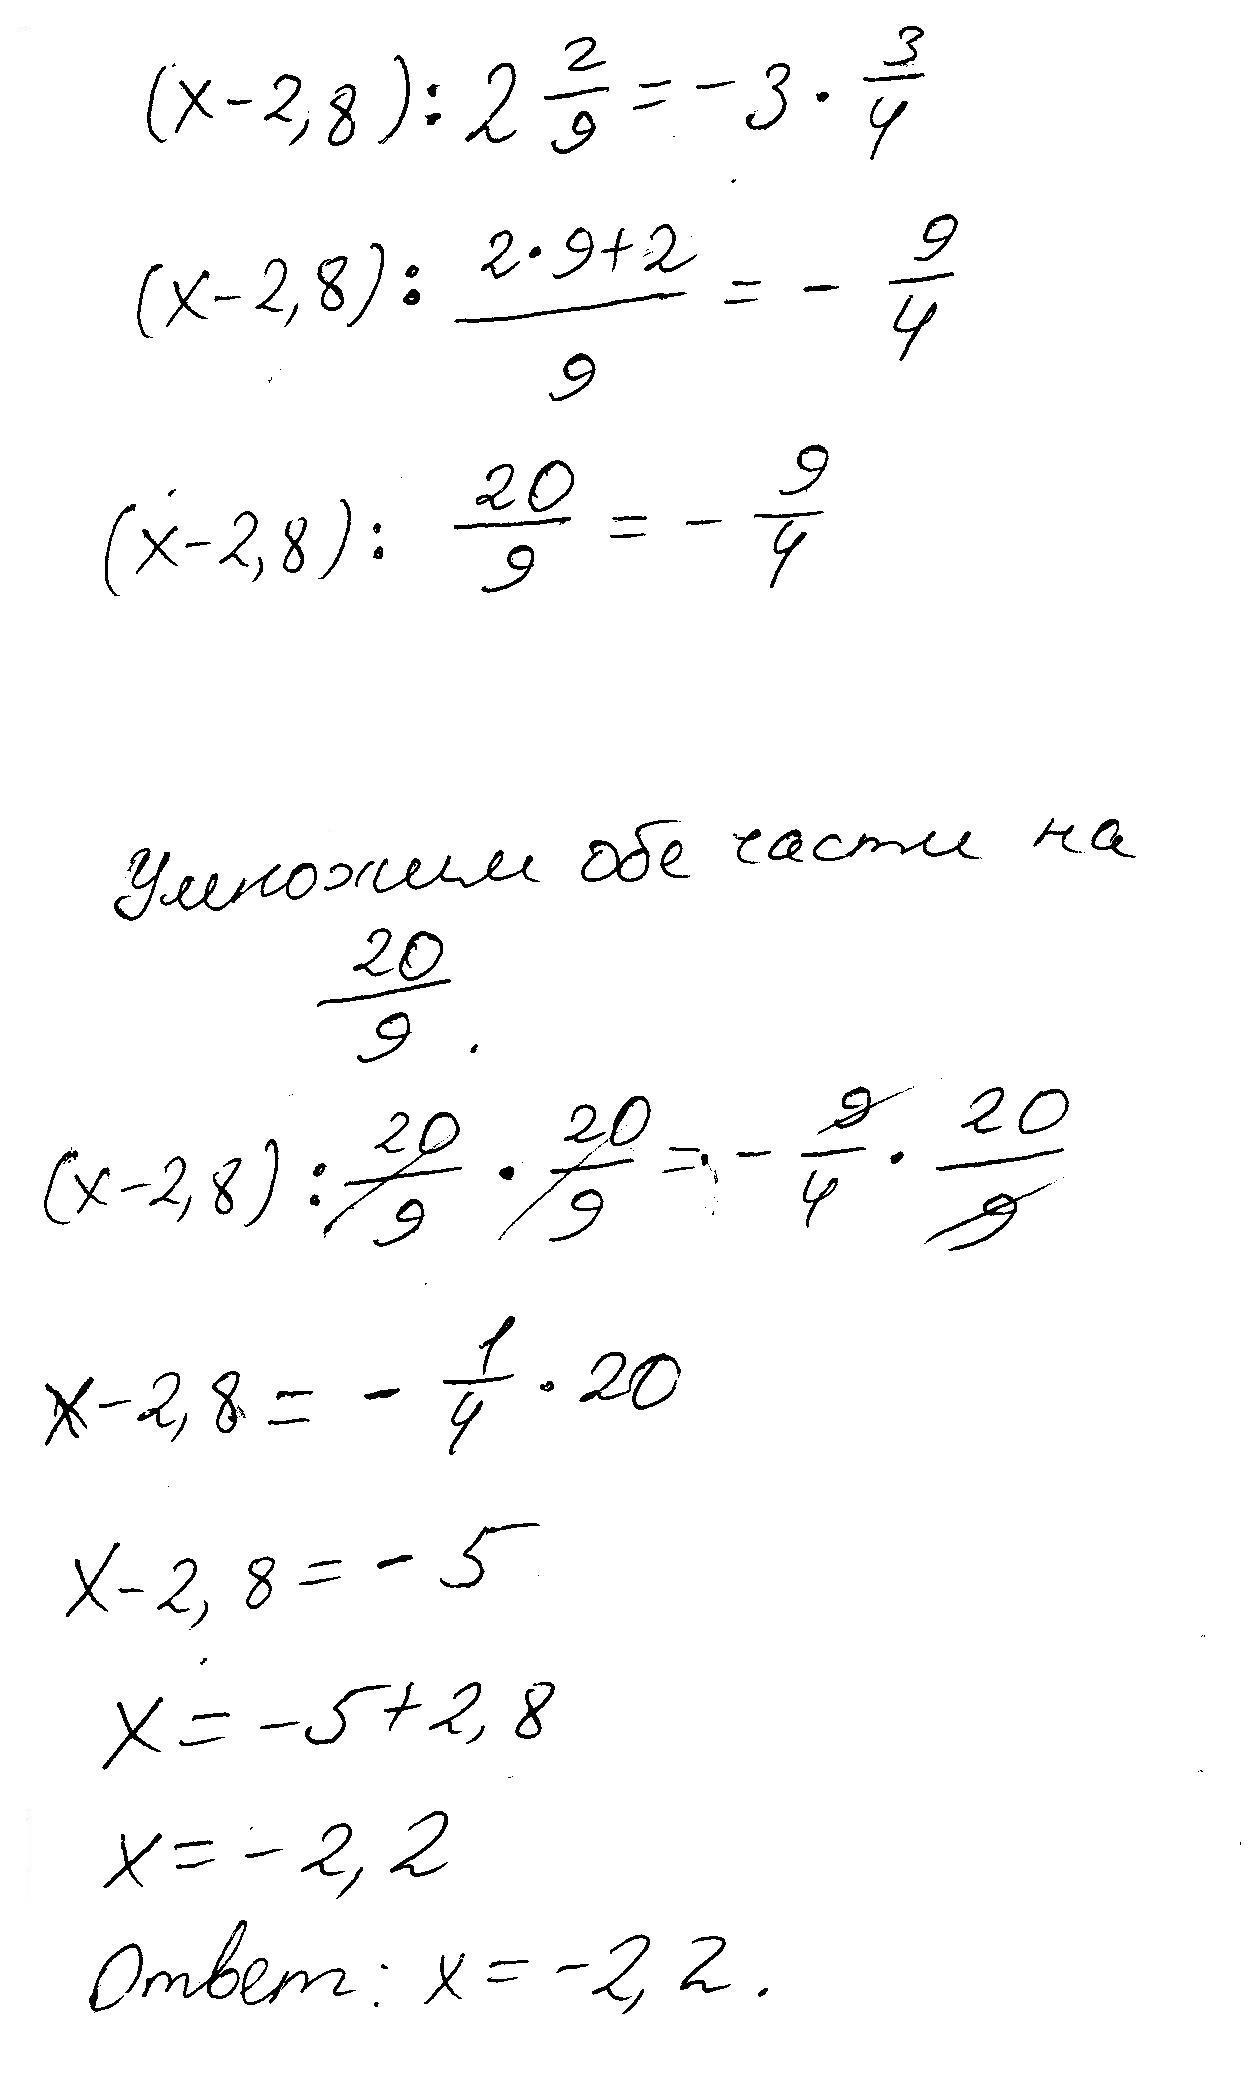 (x-2,8):2 2/9=-3·3/4
(x-2,8): (2·9+2)/9 = - 9/4
(x-2,8): 20/9 = - 9/4
Умножим обе части на
20/9.
(x-2,8): 20/9 · 20/9 = - 9/4 · 20/9
x-2,8= - 1/4 · 20
x-2,8=-5
x=-5+2,8
x=-2,2
Ответ: x=-2,2.